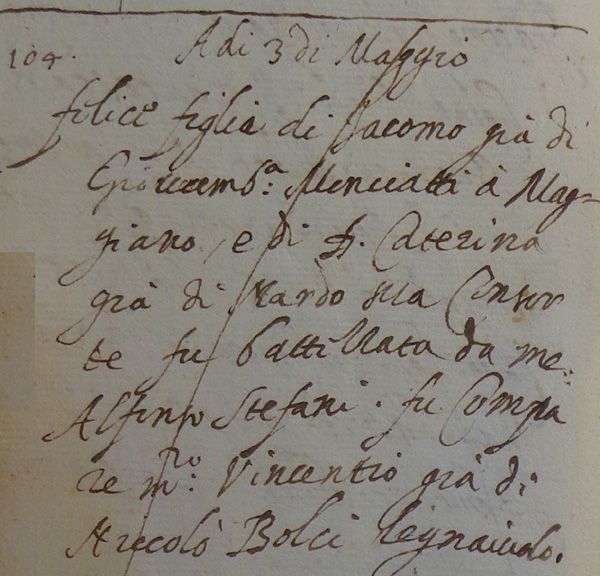 104. Adi 3 di Maggio
felice figlia di Jacomo già di
Giovamb.a Menciatti à Mag=
giano, e di D. Caterina
già di Nardo sua Consor
te fu battizzata da me:
Alfonso Stefani. fu Compa
re m.ro Vincentio già di
Niccolò Bolci legnaiuolo.